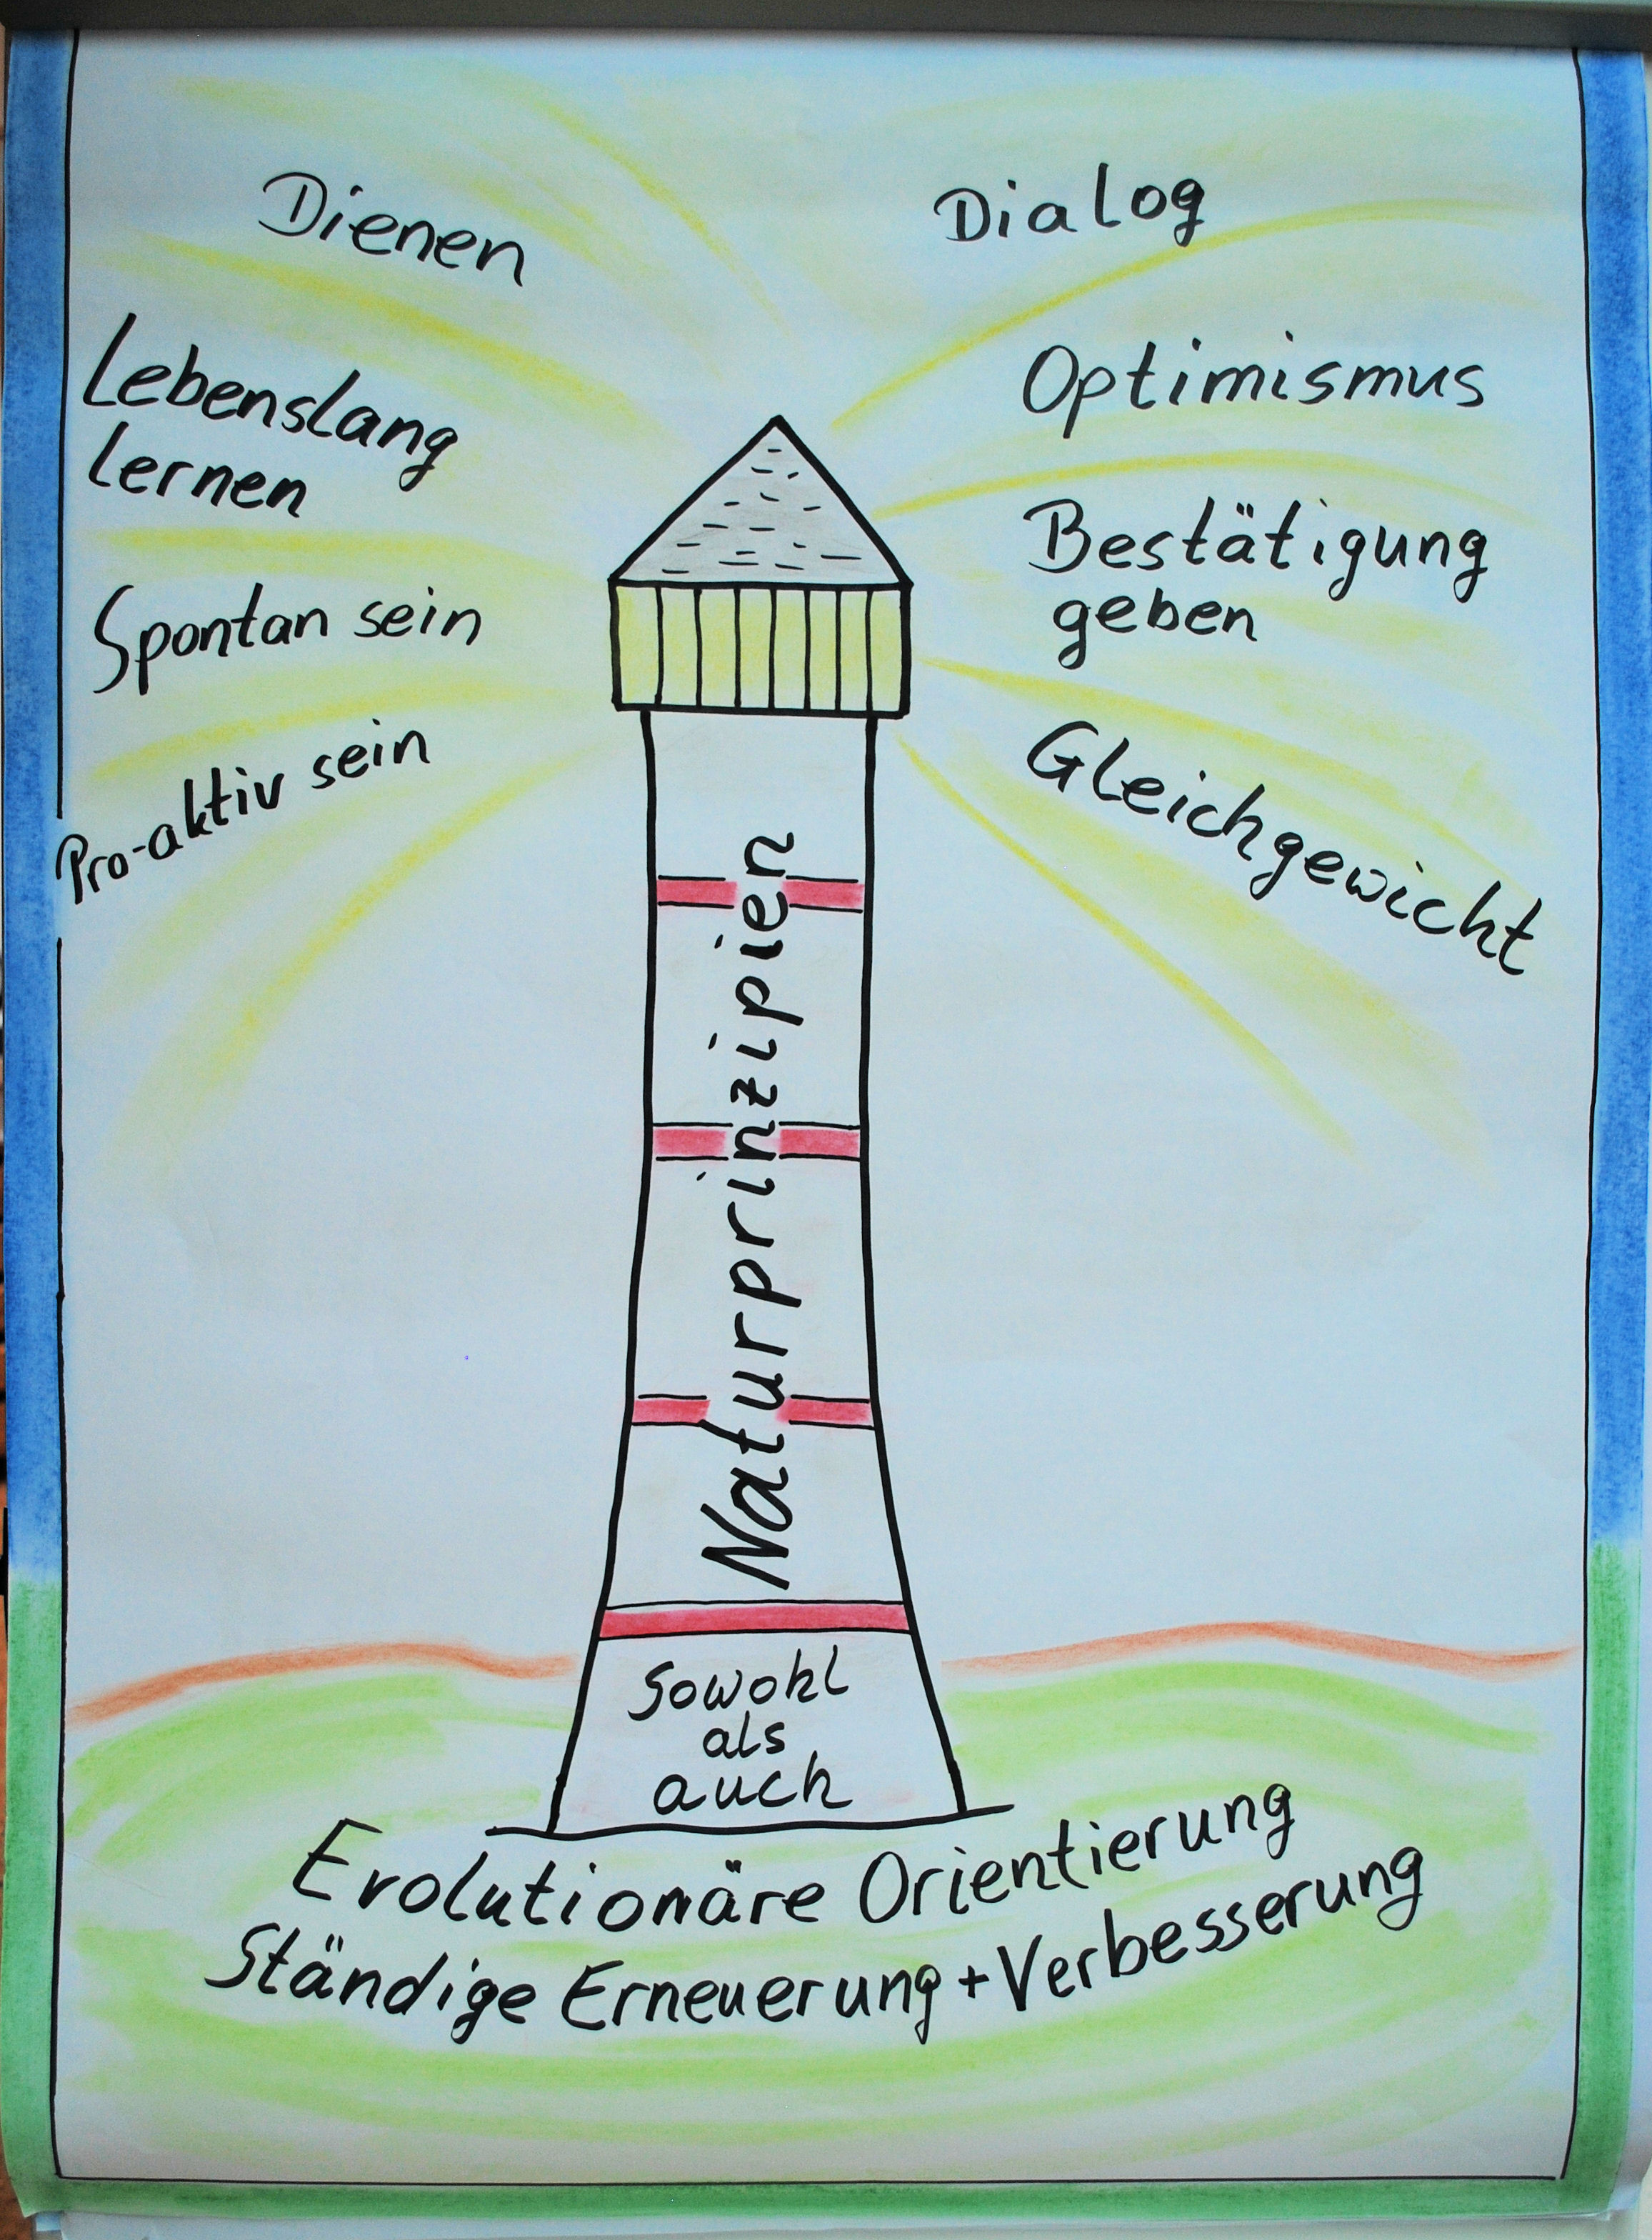 Dienen
Lebenslang
lernen
Spontan sein
Pro-aktiv sein
Dialog
Optimismus
Bestätigung
geben
Gleichgewicht
Naturprinzipien
Sowohl
als
auch
Evolutionäre Orientierung
Ständige Erneuerung + Verbesserung